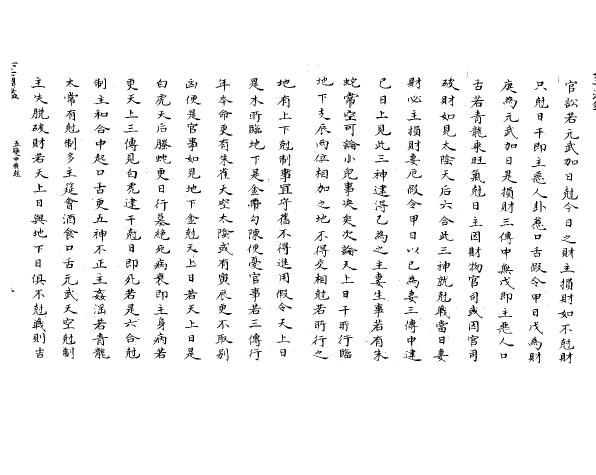 官訟若元武加日尅今日之財主損財如不尅財
只尅日干即主惡人卦惹口舌假令甲日戊為財
庚為元武加日是損財三傳中無戊即主惡人口
舌若青龍乘旺氣尅日主因財物官司或因官司
破財如見太陰天后六合此三神就尅戰當日妻
財必主損財妻厄假令甲日以己為妻三傳中逢
己日上見此三神逮得己為之主妻生事若有朱
蛇常空可論小兒事決矣次論天上日干所行臨
地下支辰兩位相加之地不得交相尅若所行之
地有上下尅制事宜守舊不得進用假令天上日
是木所臨地下是金帶勾陳便憂官事若三傳行
年本命更有朱雀天空太陰或有寅辰更不取別
凶便是官事如見地下金尅天上日若天上日是
白虎天后螣蛇更日行墓絶死病衰即主身病若
更天上三傳見白虎逮干尅日即死若是六合尅
制主和合中起口舌更五神不正主姦淫若青龍
太常有尅制多主筵會酒食口舌元武天空尅制
主失脫破財若天上日與地下日俱不尅戰則吉